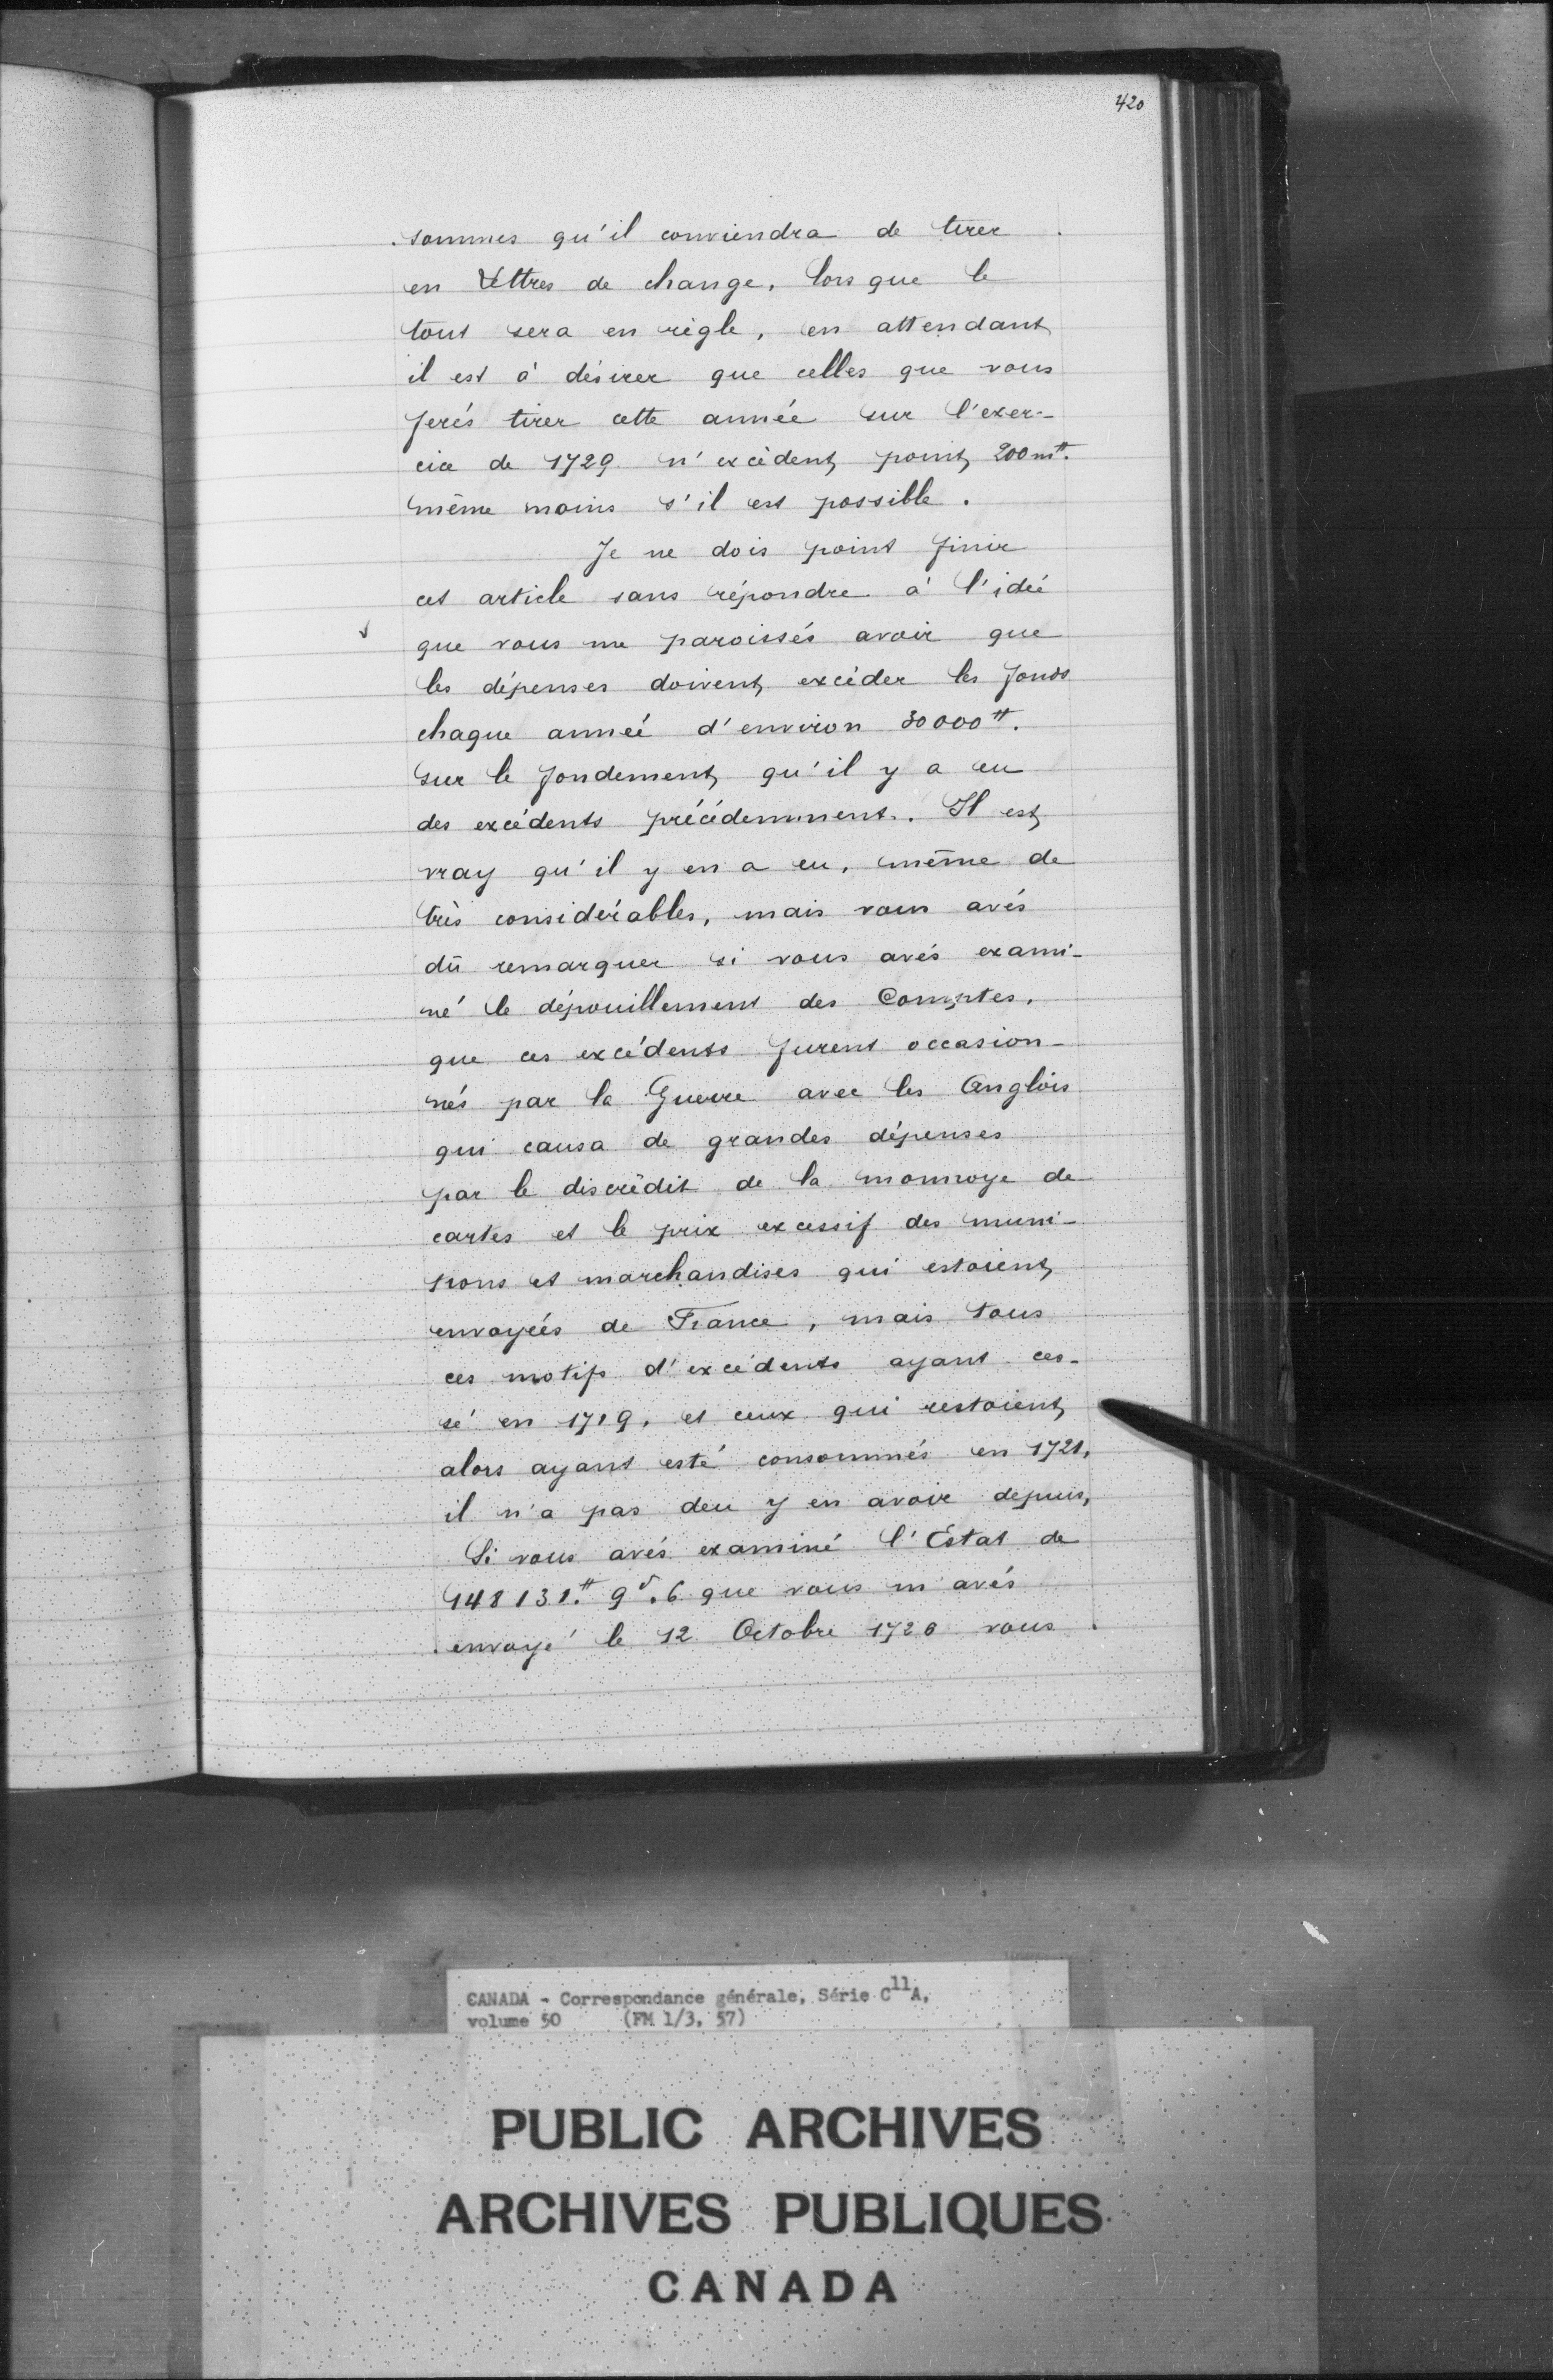 420
sommes qu'il conviendra de tirer
en Lettres de change, lors que le
tout sera en règle, en attendant
il est à désirer que celles que vous
ferés tirer cette année sur l'exer-
cice de 1729 n'excèdent point 200m#.
même moins s'il est possible.
Je ne dois point finir
cet article sans répondre à l'idée
que vous me paroissés avoir que
les dépenses doivent excéder les fonds
chaque année d'environ 30000#.
sur le fondement qu'il y a eu
des excédents précédemment. Il est
vray qu'il y en a eu, même de
très considérables, mais vous avés
dû remarquer si vous avés exami-
né le dépouillement des Comptes,
que ces excédents furent occasion-
nés par la Guerre avec les Anglois
qui causa de grandes dépenses
par le discrédit de la monnoye de
cartes et le prix excessif des muni-
tions et marchandises qui estoient
envoyées de France, mais tous
ces motifs d'excédents ayant ces-
sé en 1719, et ceux qui restoient
alors ayant esté consommés en 1721,
il n'a pas deu y en avoir depuis,
Si vous avés examiné l'Estat de
148131.# 9s.6 que vous m'avés
envoyé le 12 Octobre 1728 vous
CANADA - Correspondance générale, Série C11A,
volume 50 (FM 1/3, 57)
PUBLIC ARCHIVES
ARCHIVES PUBLIQUES
CANADA